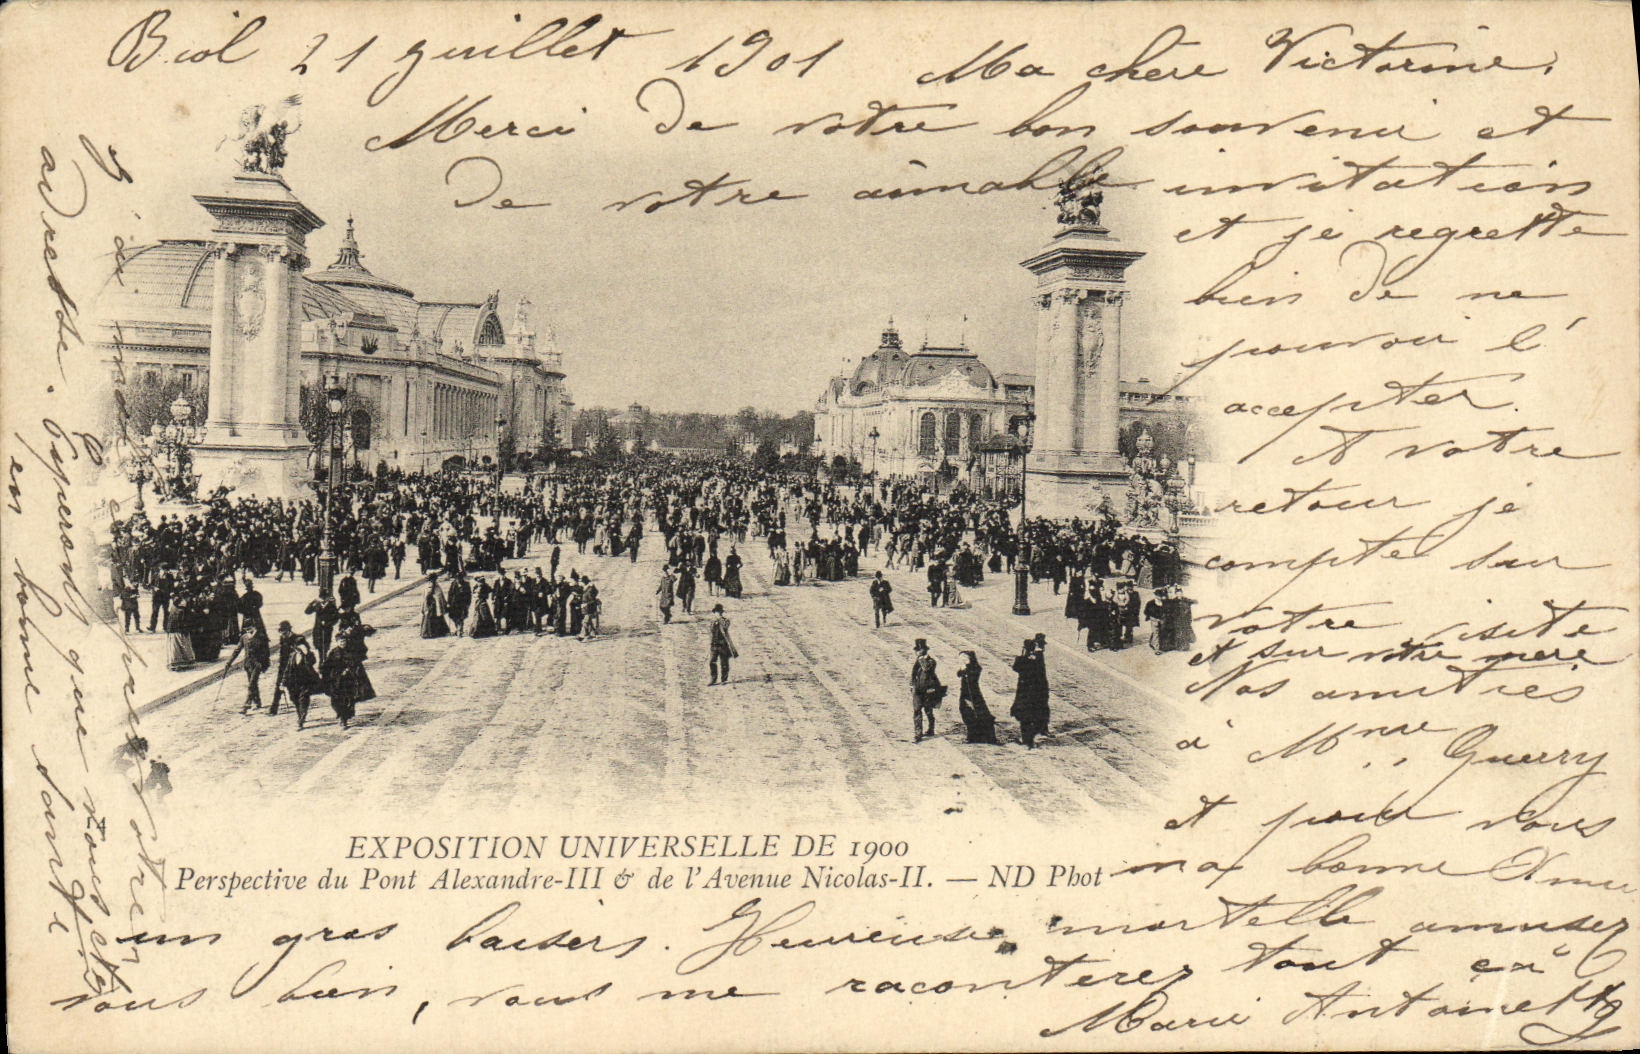 Biol 21 juillet 1901 Ma chère Victorine,
Merci de votre bon souvenir et
de votre aimable invitation
et je regrette
bien de ne
pouvoir l'
accepter.
A votre
retour je
compte sur
votre visite
et sur votre mere
Nos amitiés
à Mme Guerry
et pour vous
ma bonne Amie
un gros baisers. Heureuse mortelle amusez
vous bien, vous me raconterez tout ça
Marie Antoinette
J'ai
votre
adresse. Espérons que vous êtes
en bonne santé
EXPOSITION UNIVERSELLE DE 1900
Perspective du Pont Alexandre-III & de l'Avenue Nicolas-II. — ND Phot